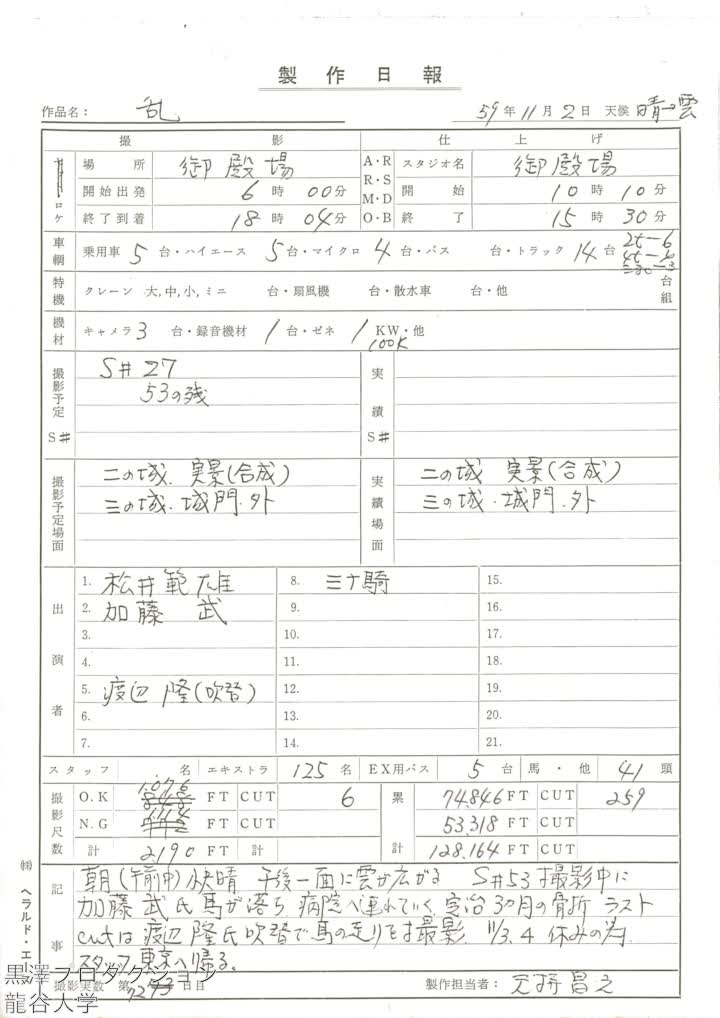 製作日報
作品名： 乱 59年11月2日 天候 晴→雲
撮影 仕上げ
ロケ 場所 御殿場 A・R スタジオ名 御殿場
開始出発 6時00分 R・S M・D 開始 10時10分
終了到着 18時04分 O・B 終了 15時30分
車輌 乗用車 5台・ハイエース 5台・マイクロ 4台・バス 台・トラック 14台 2t-6
4t-6
特機 クレーン 大,中,小,ミニ 台・扇風機 台・散水車 台・他 台組
機材 キャメラ 3台・録音機材 1台・ゼネ 1 KW・他
100K
撮影予定 S# S#27 実績 S#
53の残
撮影予定場面 二の城. 実景(合成) 実績場面 二の城 実景(合成)
三の城・城門・外 三の城・城門・外
出演者
1. 松井範雄 8. 三十騎 15.
2. 加藤 武 9. 16.
3. 10. 17.
4. 11. 18.
5. 渡辺 隆(吹替) 12. 19.
6. 13. 20.
7. 14. 21.
スタッフ 名 エキストラ 125名 EX用バス 5台 馬・他 41頭
撮影尺数 O.K 1,076 FT CUT 6 累計 74,846 FT CUT 259
N.G FT CUT 53,318 FT CUT
計 2190 FT 計 128,164 FT CUT
記事 朝(午前中)快晴 午後一面に雲が広がる S#53撮影中に
加藤 武氏馬が落ち 病院へ連れていく. 完治3カ月の骨折 ラスト
cutは渡辺 隆氏吹替で馬の走りを撮影. 11/3.4 休みの為
スタッフ東京へ帰る.
撮影実数 第 日目 製作担当者：
㈱ ヘラルド・エース
黒澤プロダクション
龍谷大学